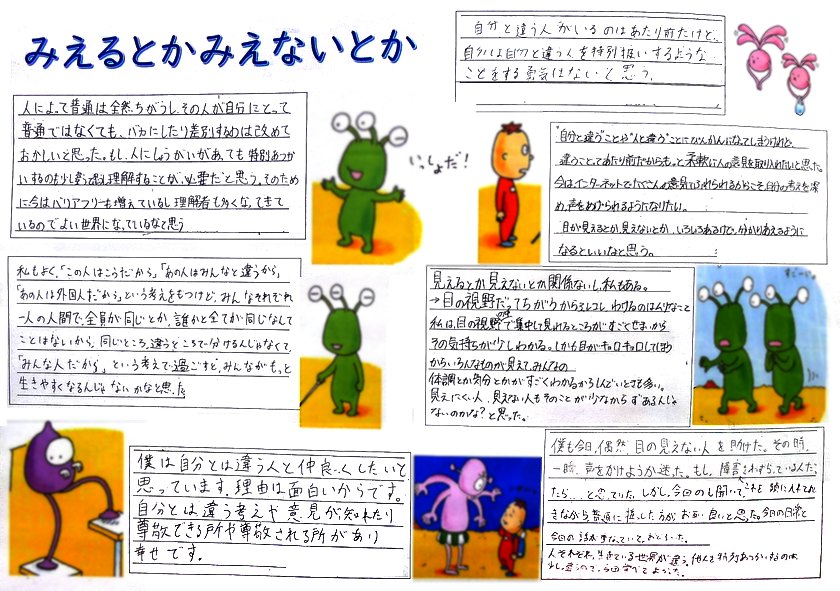 みえるとかみえないとか
自分と違う人がいるのはあたり前だけど、
自分には自分と違う人を特別扱いするような
ことをする勇気はないと思う。
人によって普通は全然ちがうし、その人が自分にとって
普通ではなくても、バカにしたり差別するのは改めて
おかしいと思った。もし、人にしょうがいがあっても特別あつか
いするのも少し違うし理解することが、必要だと思う。そのため
に今はバリアフリーも増えているし理解者も多くなってきて
いるのでよい世界になっているなと思う
いっしょだ!
"自分と違う"ことや"人と違う"ことにびんかんになってしまうけれど、
違うことってあたり前だからもっと柔軟に人の意見を取り入れたいと思った。
今はインターネットでたくさんの意見にふれられるからこそ、自分の考えを深
め、声をあげられるようになりたい。
目が見えるとか、見えないとか、いろいろあるけど、分かりあえるように
なるといいなと思う。
私もよく、「この人はこうだから」「あの人はみんなと違うから」
「あの人は外国人だから」という考えをもつけど、みんなそれぞれ
一人の人間で、全員が同じとか、誰かと全てが同じなんて
ことはないから、同じところ、違うところで分けるんじゃなくて、
「みんな人だから」という考えで過ごすと、みんながもっと
生きやすくなるんじゃないかなと思った。
見えるとか見えないとか関係ないし、私もある。
→目の視野だってちがうから
私は、目の視野で集中して見れるところがすごくせまいから
その気持ちが少しわかる。しかも目がキョロキョロしてしまう
からいろんなものが見えて、みんなの
体調とか気分とかがすごくわかるからしんどいときも多い。
見えにくい人、見えない人もそのことが少なからずあるんじゃ
ないのかな?と思った。
すごーい。
僕は自分とは違う人と仲良くしたいと
思っています。理由は面白いからです。
自分とは違う考えや意見が知れたり
尊敬できる所や尊敬される所があり
幸せです。
僕も今日、偶然、目の見えない人を助けた。その時、
一瞬、声をかけようか迷った。もし、障害
たら…と思っていた。しかし、今回の
きながら普通に接した方がお互い良いと思った。今日の日常と
今日の
人それぞれ、生きている世界が違う。他人と特別あつかいするのは
少し違うので